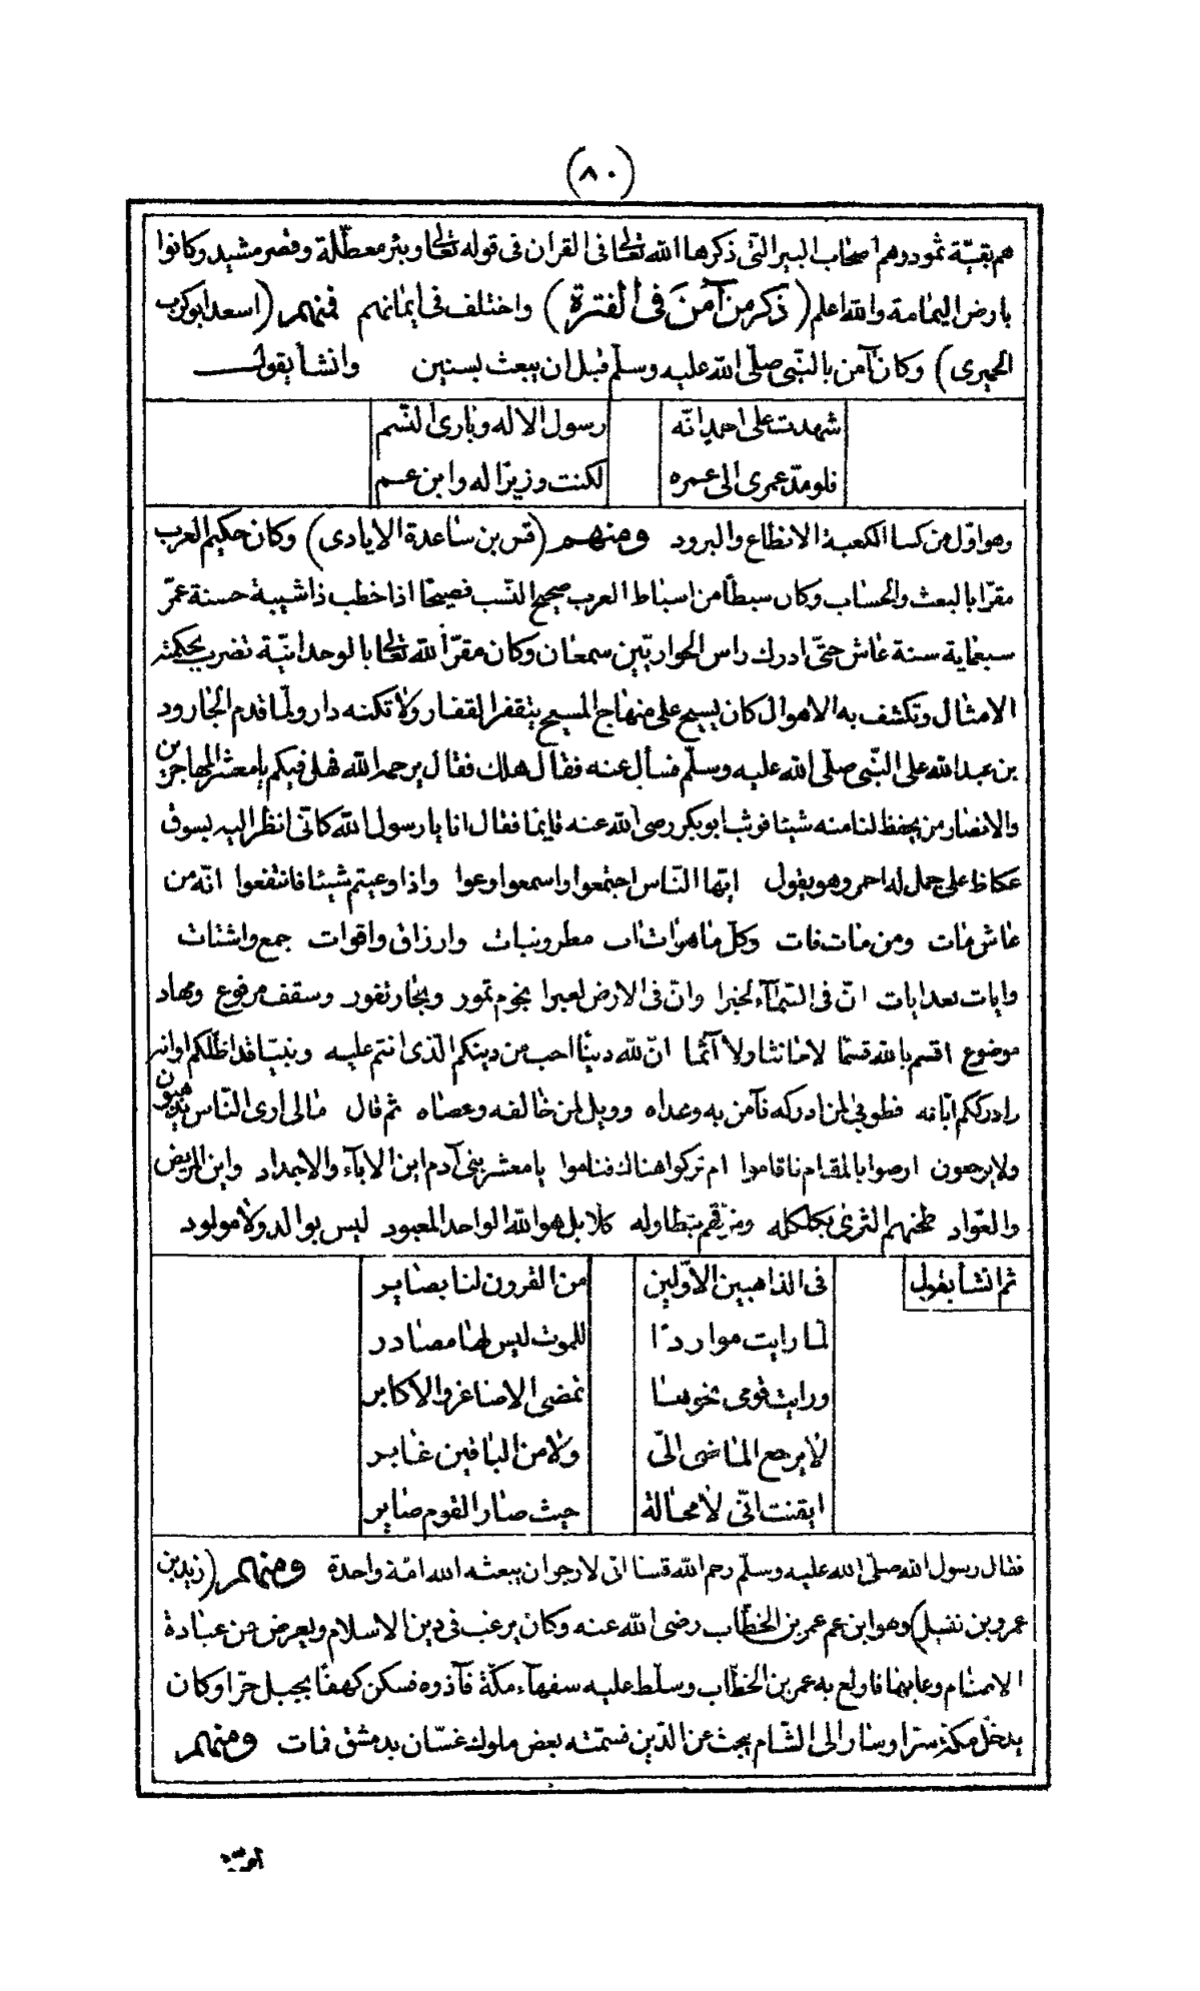 (٨٠)
هم بقيّة ثمود وهم اصحاب البير التى ذكرها الله تعالى فى القران فى قوله تعالى وبئر معطّلة وقصر مشيد وكانوا
بارض اليمامة والله اعلم (ذكر من آمن فى الفترة) واختلف فى ايمانهم فمنهم (اسعد ابو كرب
الحميرى) وكان آمن بالنّبى صلّى الله عليه وسلّم قبل ان يبعث بسنين وانشأ يقول
شهدت على احمد انّه رسول الاله وبارى النّسم
فلو مدّ عمرى الى عمره لكنت وزيرًا له وابن عم
وهو اوّل من كسا الكعبة الانطاع والبرود ومنهم (قس بن ساعدة الايادى) وكان حكيم العرب
مقرّا بالبعث والحساب وكان سبطًا من اسباط العرب صحيح النّسب فصيحًا اذا خطب ذا شيبة حسنة عمّر
سبعماية سنة عاش حتّى ادرك راس الحواريّين سمعان وكان مقرًّا لله تعالى بالوحدانيّة تضرب بحكمته
الامثال وتكشف به الاهوال كان يسيح على منهاج المسيح يتقفر القفار ولا تكنه دار ولمّا قدم الجارود
بن عبد الله على النّبى صلّى الله عليه وسلّم فسأل عنه فقال هلك فقال يرحمه الله فهل فيكم يا معشر المهاجرين
والانصار من يحفظ لنا منه شيئا فوثب ابو بكر رضى الله عنه قايمًا فقال انا يا رسول الله كانّى انظر اليه بسوق
عكاظ على جمل له احمر وهو يقول ايّها النّاس اجتمعوا واسمعوا وعوا واذا وعيتم شيئا فانتفعوا انّه من
عاش مات ومن مات فات وكلّ ما هو ات ات مطر ونبات وارزاق واقوات جمع واشتات
وايات بعد ايات انّ فى السّمآء لخبرا وانّ فى الارض لعبرا نجوم تمور وبحار تفور وسقف مرفوع ومهاد
موضوع اقسم بالله قسمًا لا حانثا ولا آثما انّ لله دينًا احب من دينكم الّذى انتم عليه ونبيّا قد اظلّكم اوانه
وادرككم ابّانه فطوبى لمن ادركه فآمن به وهداه وويل لمن خالفه وعصاه ثم قال مالى ارى النّاس يذهبون
ولا يرجعون ارضوا بالمقام فاقاموا ام تركوا هناك فناموا يا معشر بنى آدم اين الابآء والاجداد واين المريض
والعوّاد طحنهم الثرى بكلكله ومزّقهم بتطاوله كلّا بل هو الله الواحد المعبود ليس بوالد ولا مولود
ثم انشأ يقول فى الذاهبين الاوّلين من القرون لنا بصاير
لما رايت مواردًا للموت ليس لها مصادر
ورايت قومى نحوها تمضى الاصاغر والاكابر
لا يرجع الماضى الىّ ولا من الباقين غابر
ايقنت انّى لا محالة حيث صار القوم صاير
فقال رسول الله صلّى الله عليه وسلّم رحم الله قسا انى لارجو ان يبعثه الله امّة واحدة ومنهم (زيد بن
عمرو بن نفيل) وهو ابن عم عمر بن الخطّاب رضى الله عنه وكان يرغب فى دين الاسلام ويعرض عن عبادة
الاصنام وعابها فاولع به عمر بن الخطّاب وسلّط عليه سفهآء مكّة فآذوه فسكن كهفًا بجبل حرّا وكان
يدخل مكّة سرّا وسار الى الشّام يبحث عن الدّين فسمّته بعض ملوك غسّان بدمشق فمات ومنهم
اميّة